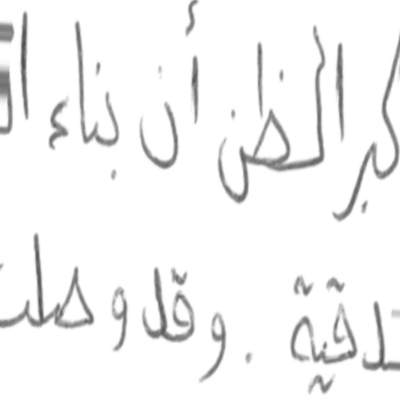 كبر الظن أن بناء ا
دقية . و قد وصلت